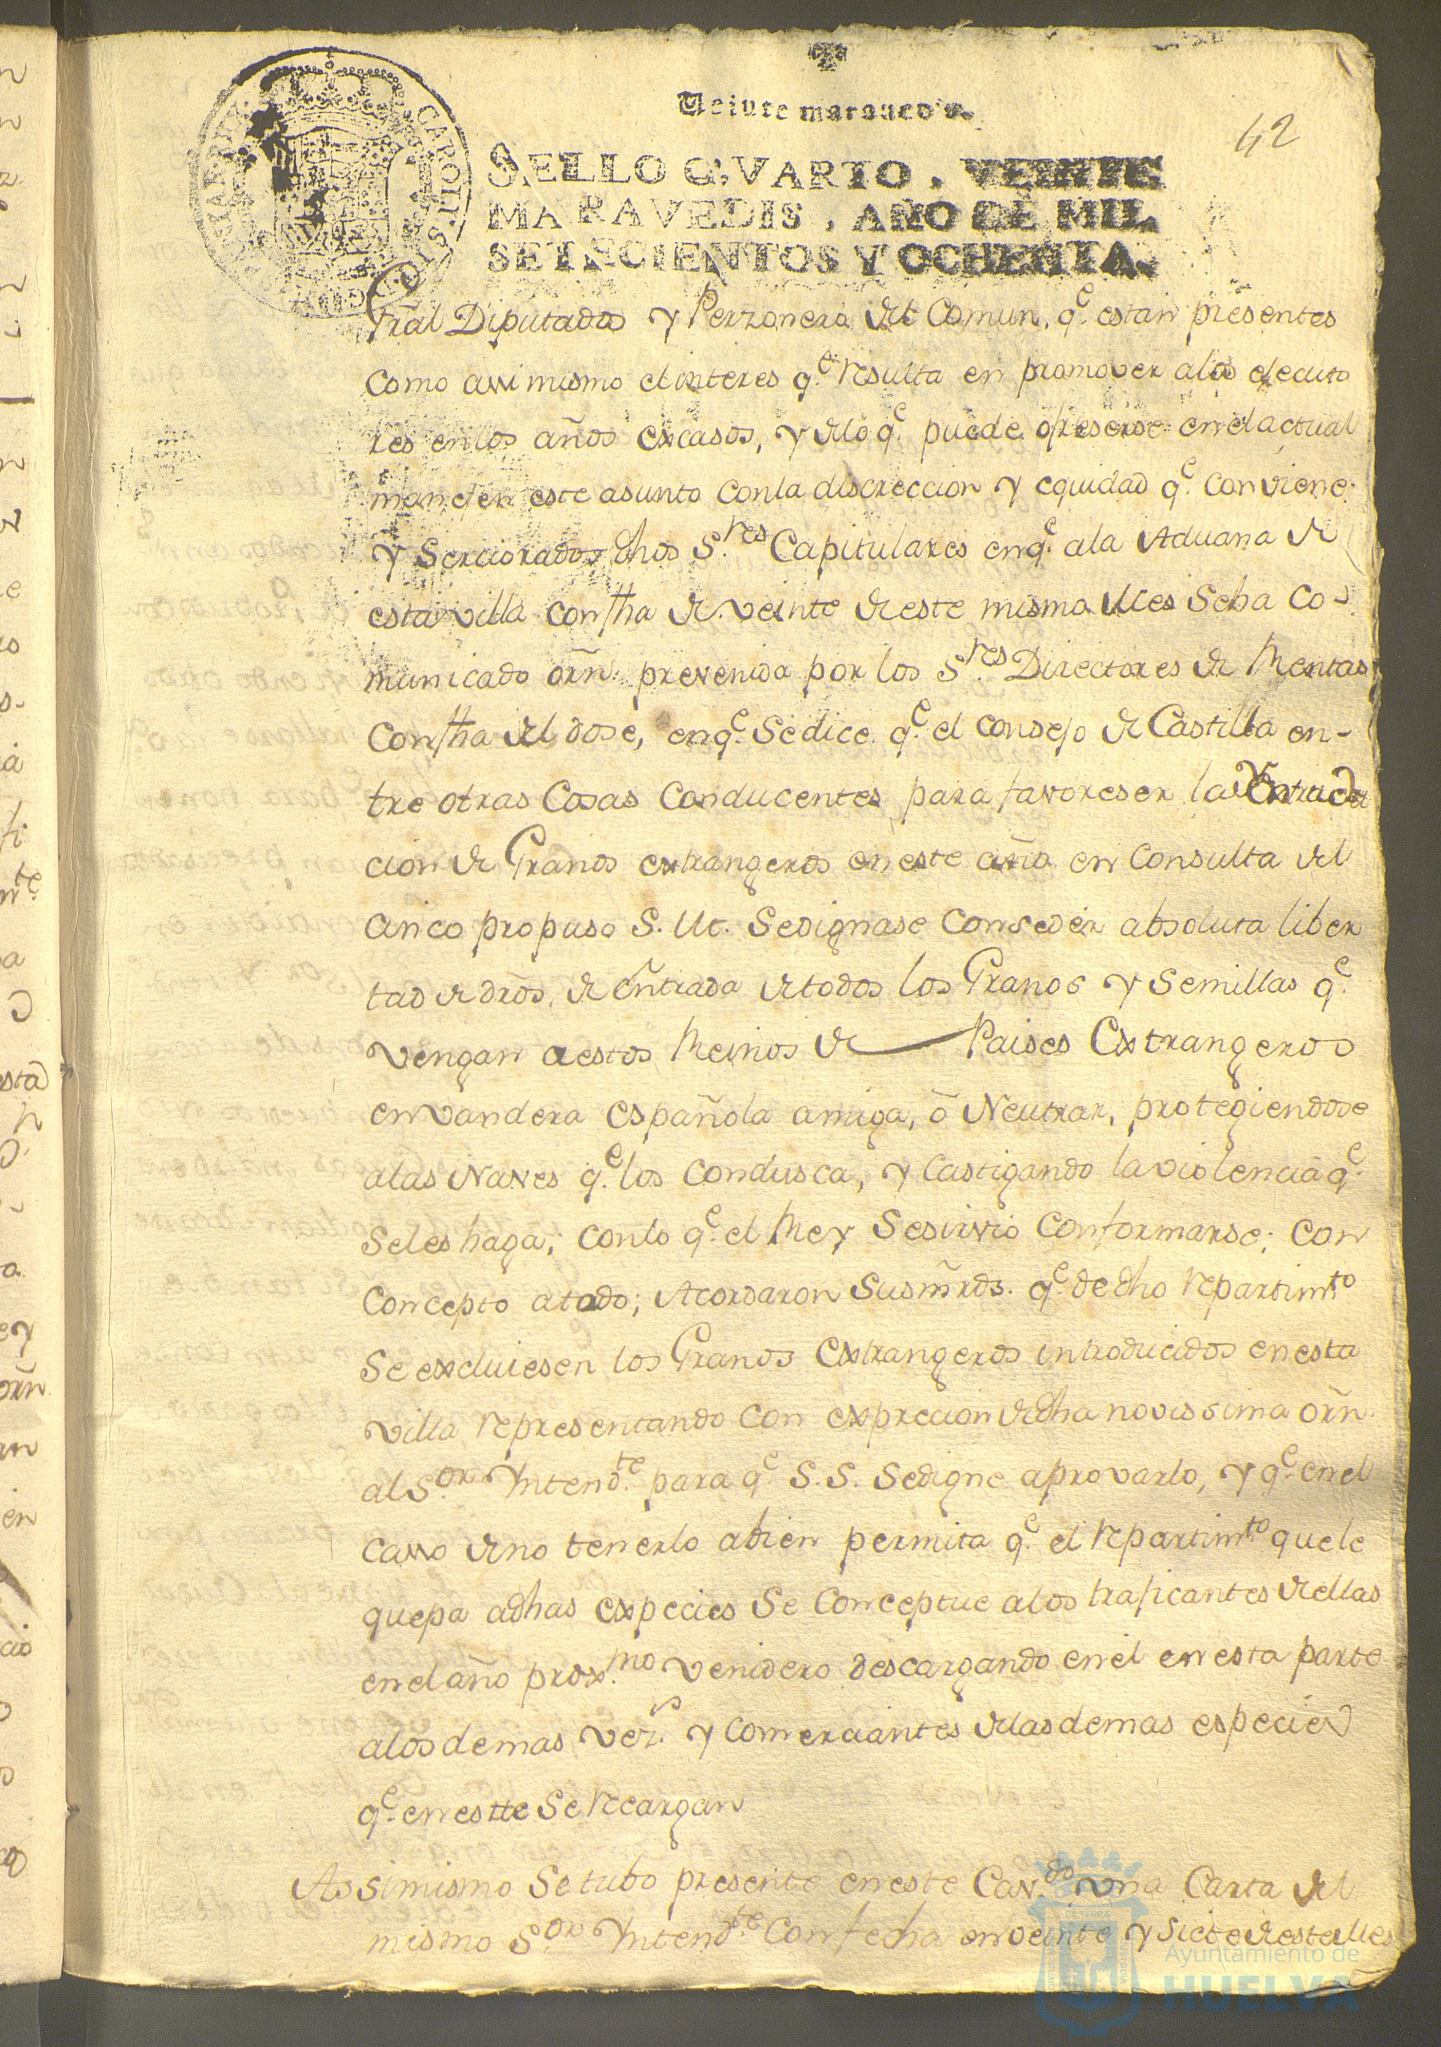 Veinte marauedis.
42
SELLO QVARTO, VEINTE
MARAVEDIS, AÑO DE MIL
SETECIENTOS Y OCHENTA.
CAROLUS III D G
Grãl Diputados y Perzonero del Comun, q.e estan presentes
como assi mismo el interes q.e resulta en promover a los
res en los años excasos, y de lo q.e puede ofreserse en el actual
manden este asunto con la discreccion y equidad q.e conviene.
Y Serciorados dhos S.res Capitulares en q.e a la Aduana de
esta villa con fha de veinte de este mismo Mes Se ha co-
municado orñ. prevenida por los S.res Directores de Rentas
Con fha del dose, en q.e Se dice q.e el Consejo de Castilla en-
tre otras Cosas Conducentes para favoreser la
cion de Granos extrangeros en este año en Consulta del
propuso S. M. Se dignase Conseder absoluta liber
tad de drõs. de entrada de todos los Granos y Semillas q.e
vengan a estos Reinos de Paises Extrangeros
en vandera Española amiga, ò Neutrar, protegiendose
a las Naves q.e los Condusca, y Castigando la violencia q.e
Se les haga; con lo q.e el Rey Se sirvio Conformarse; Con
Concepto a todo; Acordaron Sus mrds. q.e de dho repartim.to
Se excluiesen los Granos Extrangeros introducidos en esta
villa representando con exprecion de dha novissima orñ.
al S.or Yntend.te para q.e S. S. Se digne aprovarlo, y q.e en el
casso de no tenerlo a bien permita q.e el repartim.to que le
quepa a dhas expecies Se Conceptue a los traficantes de ellas
en el año prox.mo venidero descargando en el en esta parte
a los demas vez.s y Comerciantes de las demas especies
q.e en estte Se recargan
Assimismo Se tubo presente en este Cav.do una Carta del
mismo S.or Yntend.te Con fecha en veinte y siete de este Mes
Ayuntamiento de
HUELVA